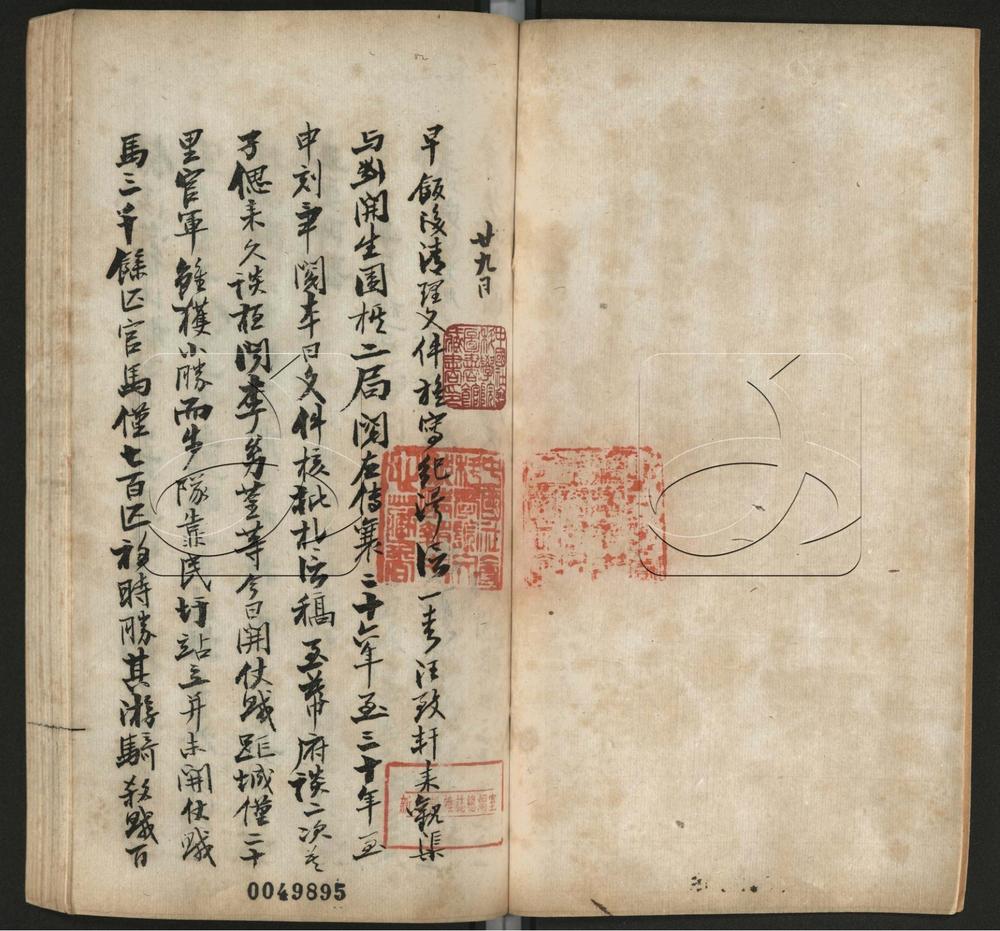 廿九日
早飯後清理文件旋寫紀澤信一書汪致軒来觀渠
与劉開生圍棋二局閱左傳襄二十六年至三十年至
申刻畢閱本日文件核批札信稿至幕府談二次
子偲来久談拒閱李勇等今日開仗賊距城僅二十
里官軍雖獲小勝而步隊靠民圩站立并未開仗賊
馬三千餘匹官馬僅七百匹初時勝其游騎殺賊百
0049895